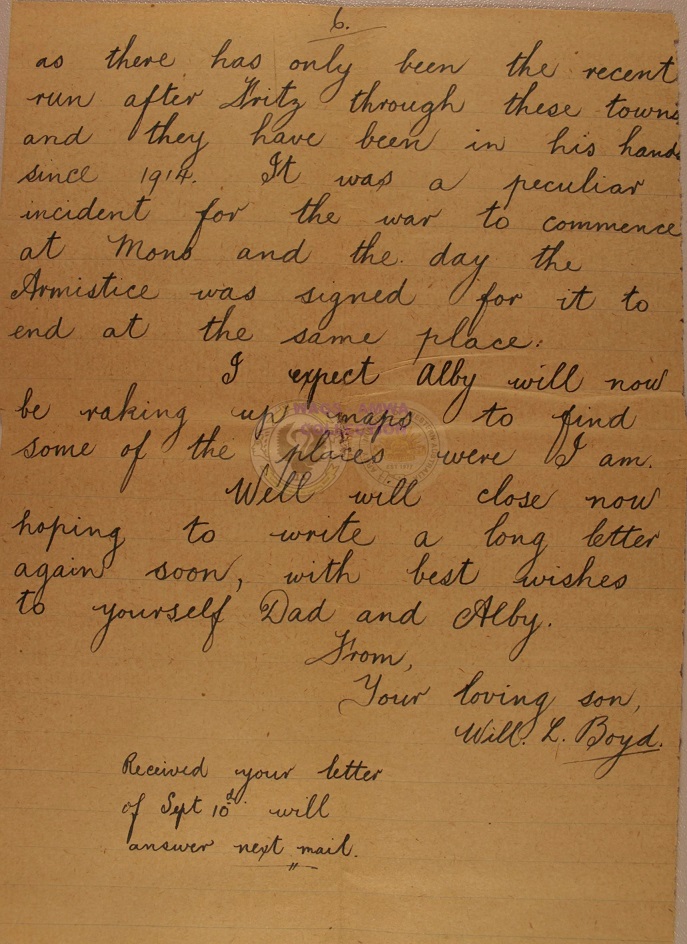 6.
as there has only been the recent
run after Fritz through these towns
and they have been in his hands
since 1914. It was a peculiar
incident for the war to commence
at Mons and the day the
Armistice was signed for it to
end at the same place:
I expect Alby will now
be raking up maps to find
some of the places were I am.
Well will close now
hoping to write a long letter
again soon, with best wishes
to yourself Dad and Alby.
From,
Your loving son,
Will. L. Boyd.
Received your letter
of Sept 10th will
answer next mail.